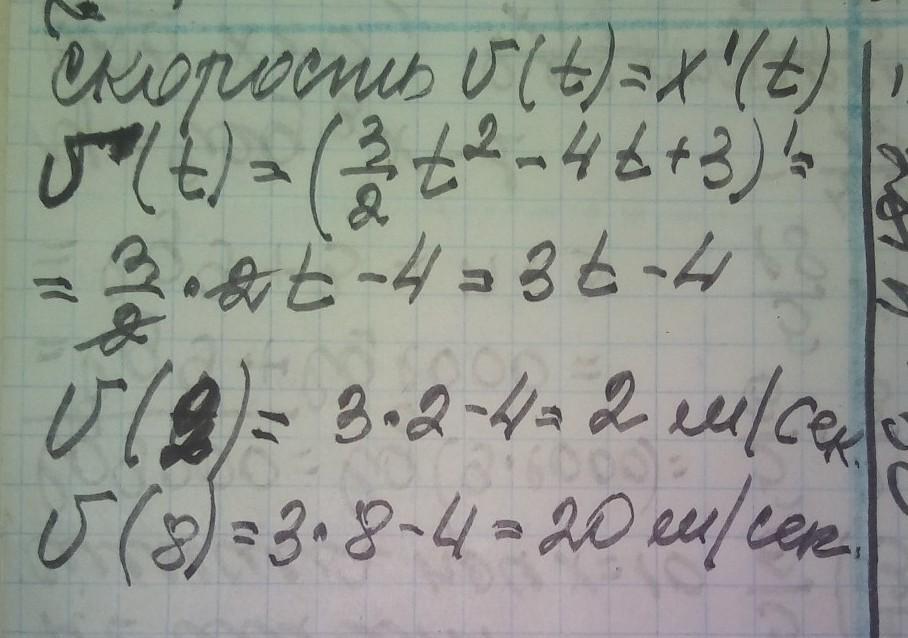 скорость v(t)=x'(t)
v(t)=(3/2 t²-4t+3)'=
=3/2·2t-4=3t-4
v(2)=3·2-4=2 м/сек.
v(8)=3·8-4=20 м/сек.